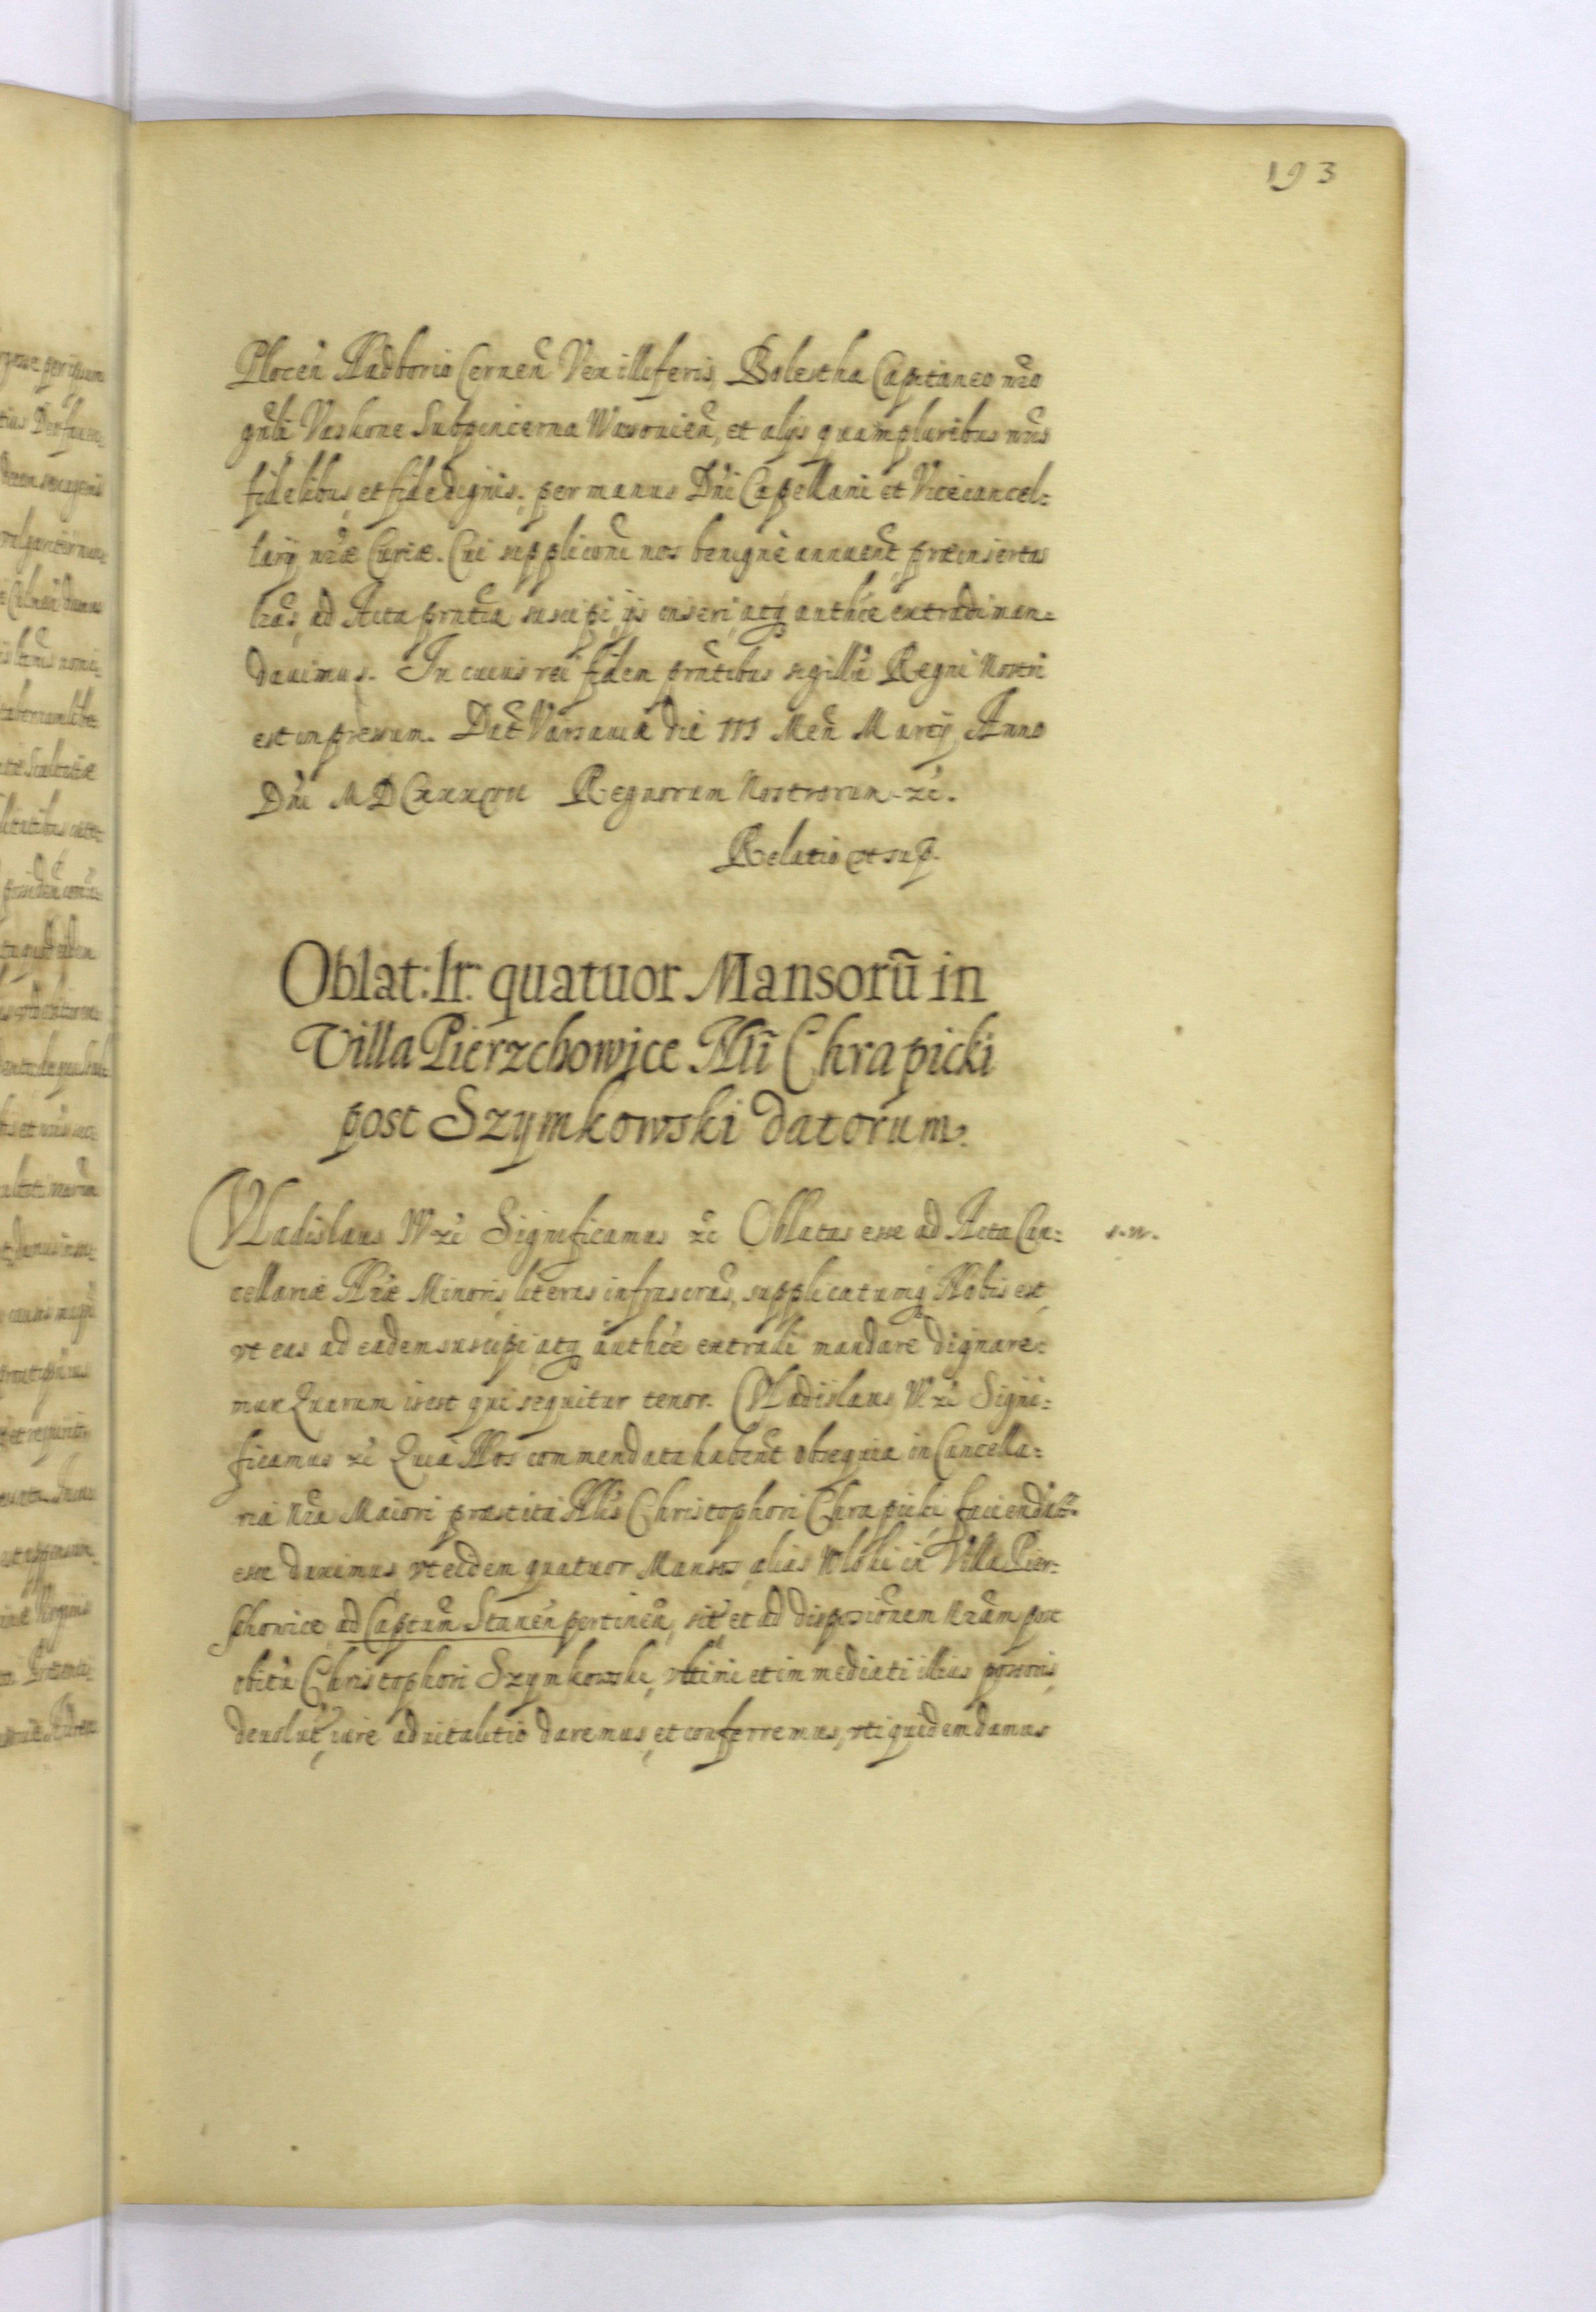 193
Plocen̄ Nadborio Cernen̄ Vexilliferis, Bolestha Capitaneo nr̄o
gn̄li Vaskone Subpincerna Wisonien̄, et alijs quampluribus nr̄is
fidelibus, et fidedignis. per manus Dn̄i Capellani et Vicecancel=
larij nr̄æ Curiæ. Cui supplicōni nos benignè annuen̄t, præinsertas
lr̄as, ad Acta prn̄tia suscipi, ijs inseri, atq̨ authc̄e extradi man=
dauimus. In cuius rei fidem prn̄tibus sigillū Regni Nostri
est impressum. Dat̄ Varsauiæ die III Men̄ Martij, Anno
Dn̄i Regnorum Nostrorum zc̄.
Relatio vt sup.
Oblat: lr: quatuor Mansorū in
Villa Pierzchowice Nlī Chrapicki
post Szymkowski datorum.
Vladislaus IV zc̄ Significamus zc̄ Oblatas esse ad Acta Can=
cellariæ Nr̄æ Minoris, literas infrascrās, supplicatumq̨ Nobis est,
vt eas ad eadem suscipi, atq̨ authc̄e extradi mandare dignare=
mur Quarum is est qui sequitur tenor. Vladislaus IV zc̄ Signi=
ficamus zc̄ Quia Nos commendata haben̄t obsequia in Cancella=
ria Nr̄a Maiori præstita Nlis Christophori Chrapicki faciend
esse duximus vt eidem quatuor Mansos, alias Włóki in Villa Pier=
schowice, ad Captum̄ Stanen̄ pertinen̄, sit̄, et ad dispositiōnem Nr̄am post
obitū Christophori Szymkowski, vltimi et immediati illius possoris,
deuolut̄, iure aduitalitio daremus, et conferremus, vti quidem damus